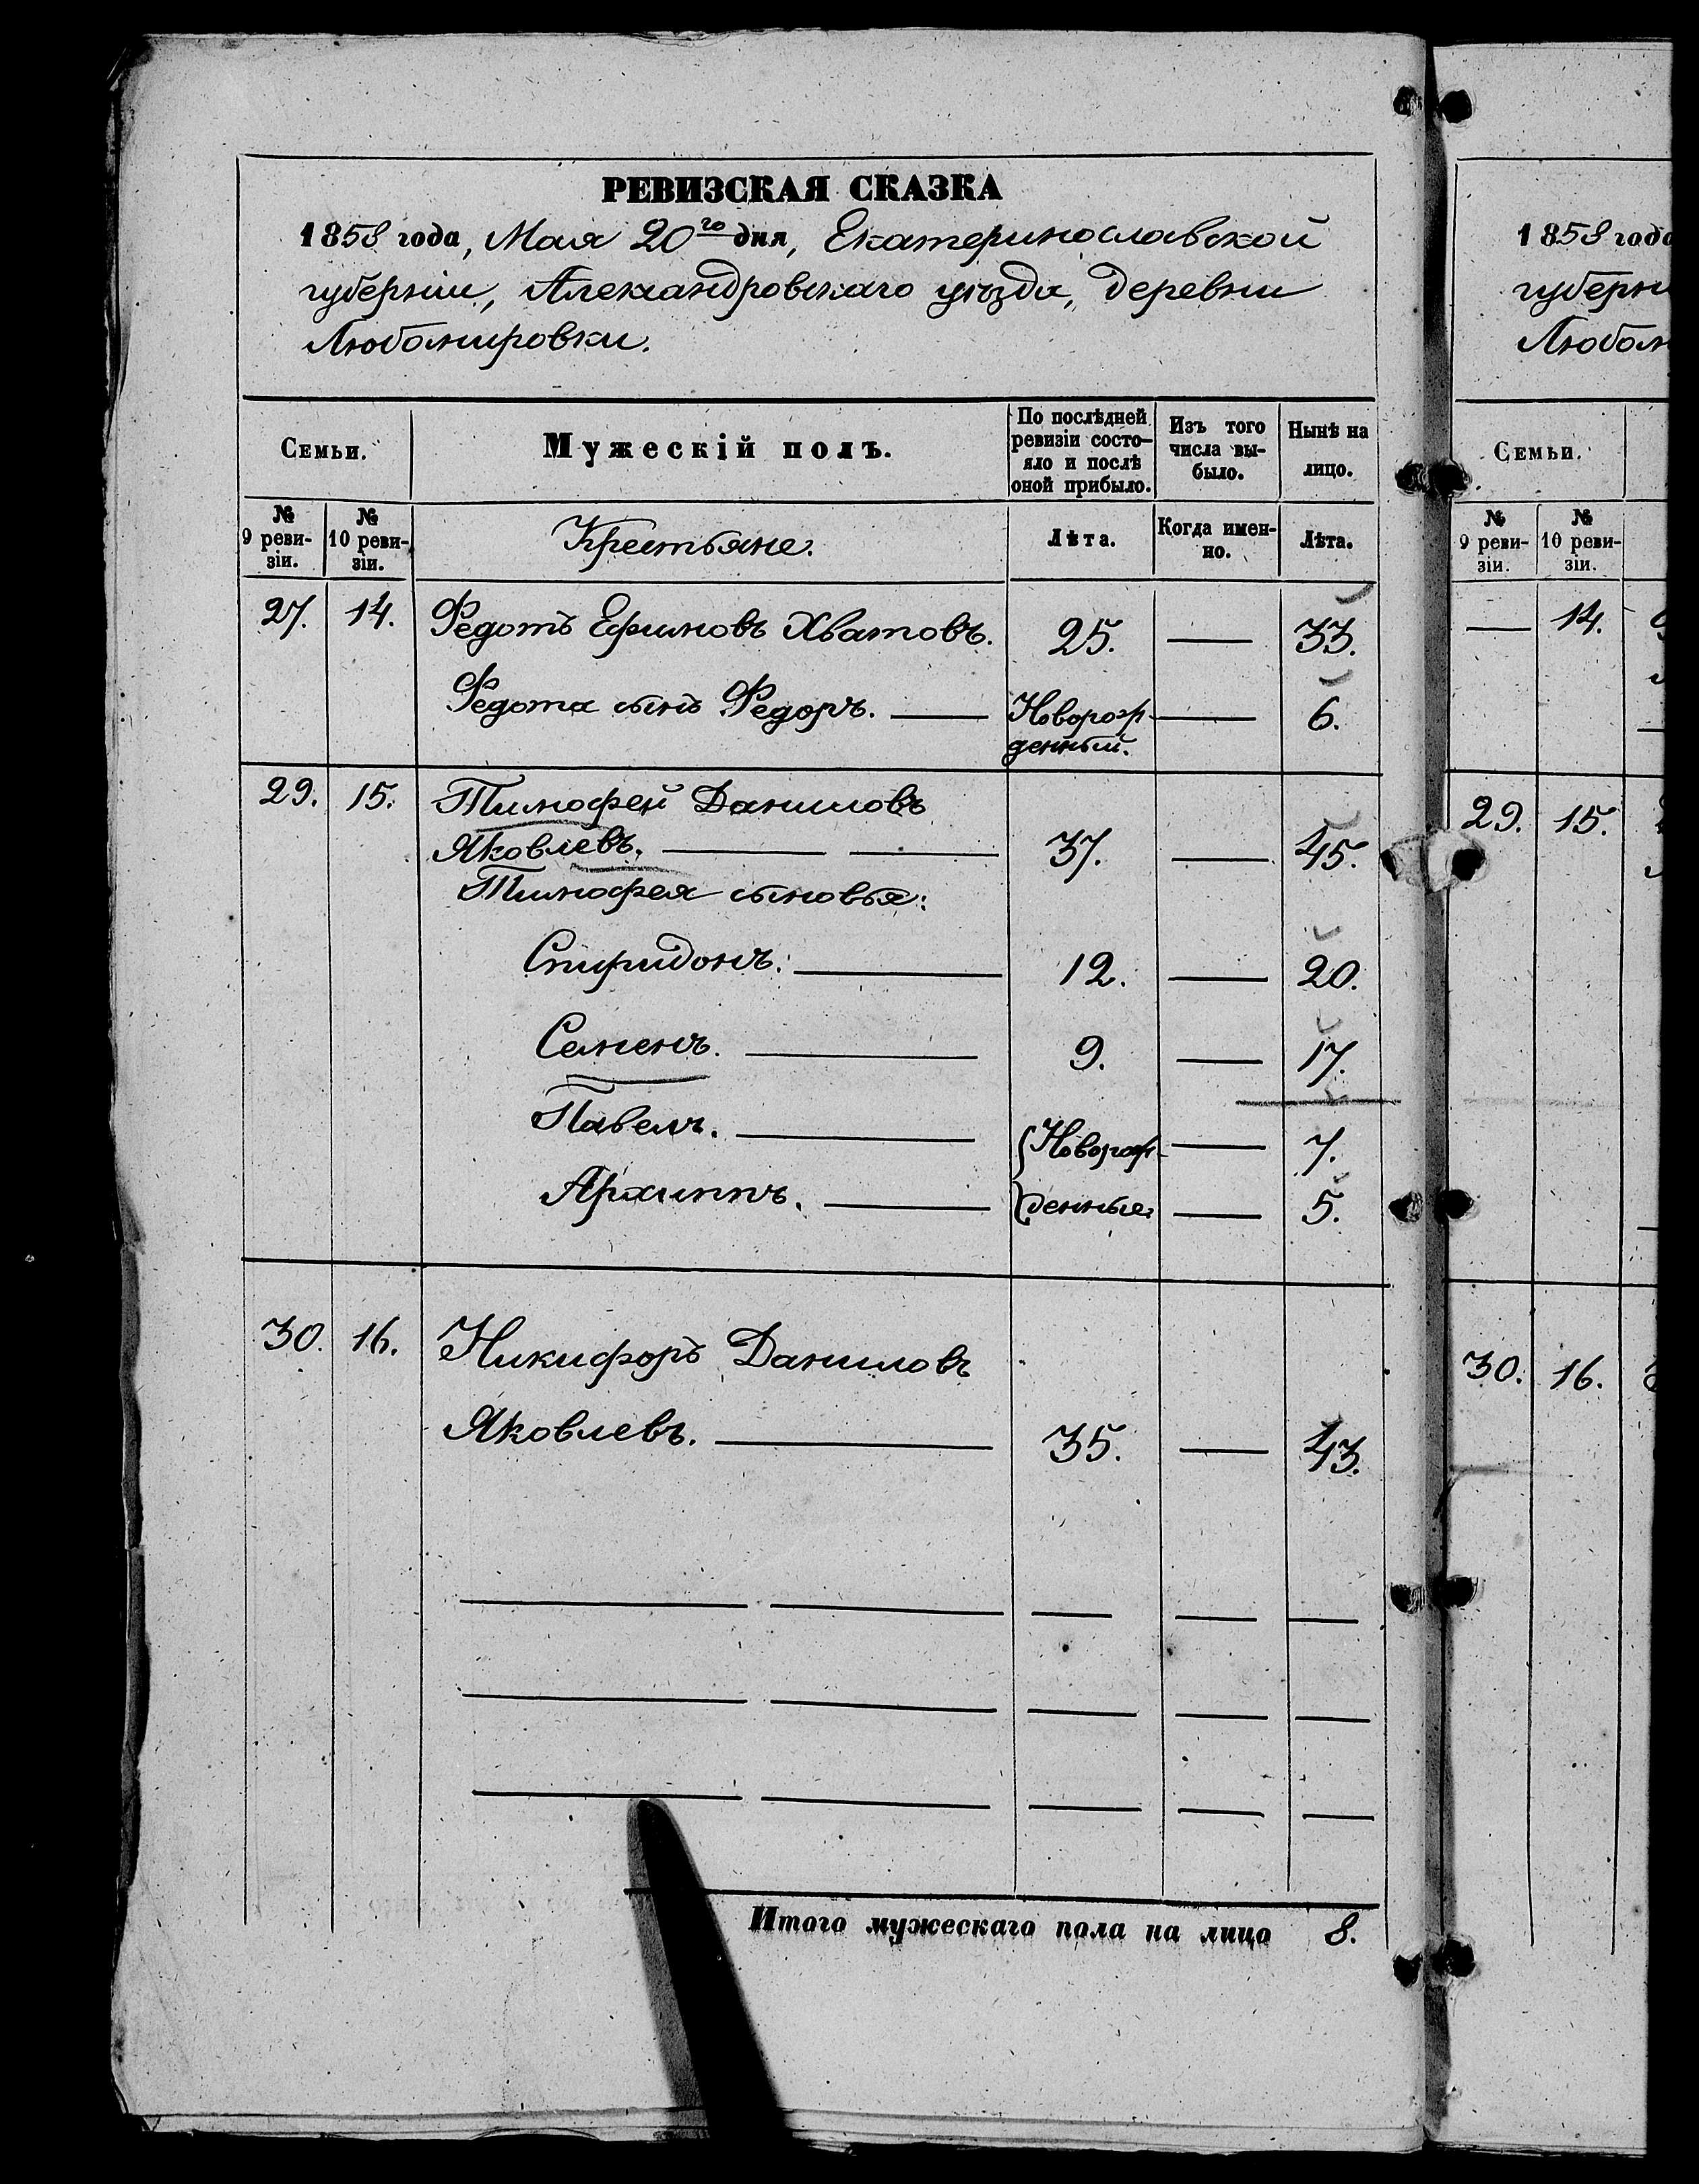 РЕВИЗСКАЯ СКАЗКА
1858 года, Мая 20го дня, Екатеринославской
губерніи, Александровскаго уѣзда, деревни
Любомировки.
Семьи.
Мужескій полъ.
По послѣдней
ревизіи состо-
яло и послѣ
оной прибыло.
Изъ того
числа вы-
было.
Нынѣ на
лицо.
№
9 реви-
зіи.
№
10 реви-
зіи.
Крестьяне.
Лѣта.
Когда имен-
но.
Лѣта.
27. 14. Федотъ Ефимовъ Хватовъ. 25. — 33.
Федота сынъ Федоръ. — Новорож- — 6.
денный.
29. 15. Тимофей Даниловъ
Яковлевъ. — — 37. — 45.
Тимофея сыновья:
Спиридонъ. — 12. — 20.
Семенъ. — 9. — 17.
Павелъ. — Новорож- — 7.
Архиппъ. — денные. — 5.
30. 16. Никифоръ Даниловъ
Яковлевъ. — 35. — 43.
Итого мужескаго пола на лицо 8.
1858 года
губерни
Любом
Семьи.
№
9 реви-
зіи.
№
10 реви-
зіи.
— 14.
29. 15.
30. 16.